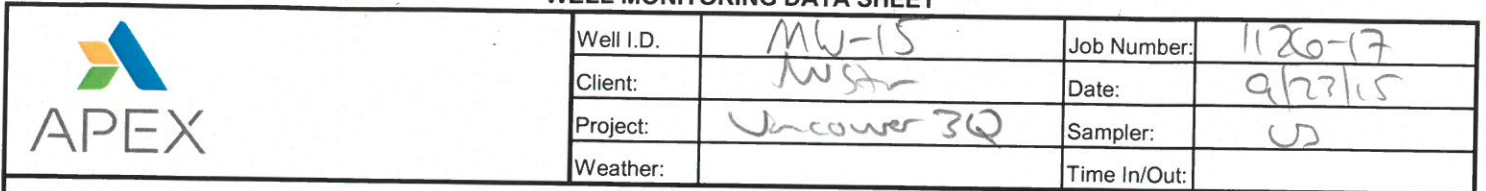 WELL MONITORING DATA SHEET
APEX
Well I.D. MW-15 Job Number: 1126-17
Client: Date: 9/23/15
Project: Vancouver 3Q Sampler:
Weather: Time In/Out: